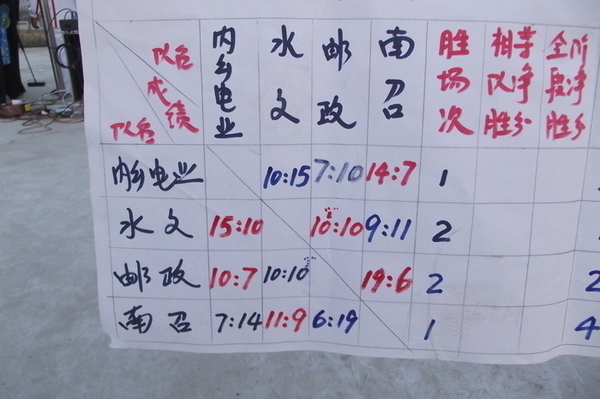 队名 成绩 队名 内乡电业 水文 邮政 南召 胜场次 相等队净胜分 全阶段净胜分
内乡电业 10:15 7:10 14:7 1
水文 15:10 10:10 9:11 2
邮政 10:7 10:10 19:6 2 2
南召 7:14 11:9 6:19 1 4